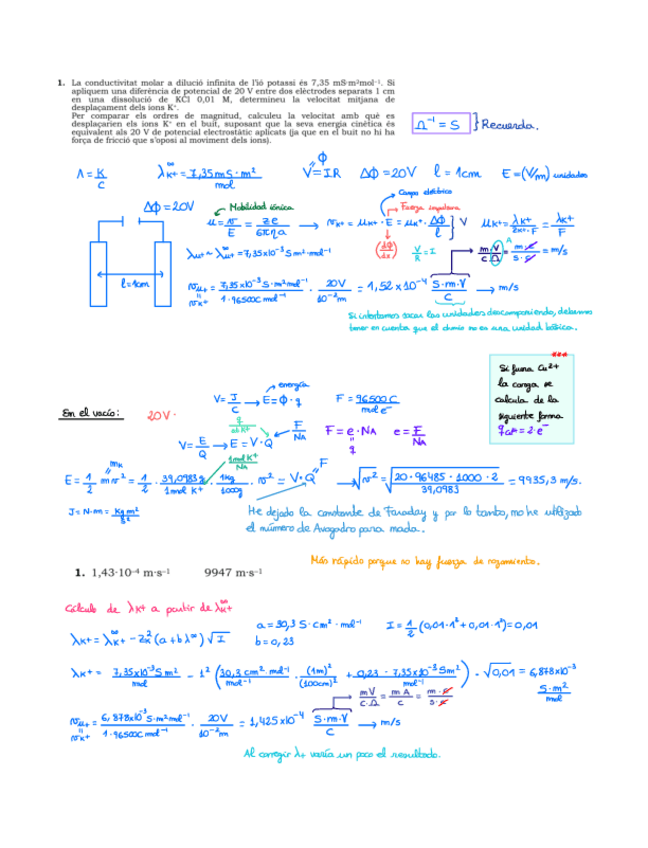 1. La conductivitat molar a dilució infinita de l'ió potassi és 7,35 mS·m²mol⁻¹. Si
apliquem una diferència de potencial de 20 V entre dos elèctrodes separats 1 cm
en una dissolució de KCl 0,01 M, determineu la velocitat mitjana de
desplaçament dels ions K⁺.
Per comparar els ordres de magnitud, calculeu la velocitat amb què es
desplaçarien els ions K⁺ en el buit, suposant que la seva energia cinètica és
equivalent als 20 V de potencial electrostàtic aplicats (ja que en el buit no hi ha
força de fricció que s'oposi al moviment dels ions).
Ω⁻¹ = S } Recuerda.
Λ = K/C
λ∞K+ = 7,35 mS·m²/mol
ϕ
V = IR
Δϕ = 20V
l = 1cm
E = (V/m) unidades
Campo eléctrico
Δϕ = 20V
Movilidad iónica
Fuerza impulsora
μ = v/E = ze/6πηa → vK+ = μK+ · E = μK+ · Δϕ/l } V
μK+ = λK+/zK+·F = λK+/F
(dϕ/dx)
V/R = I
λK+ ~ λ∞K+ = 7,35x10⁻³ S m² mol⁻¹
m·V/C·Ω = m·C/s·C = m/s
A
l = 1cm
vK+ = 7,35x10⁻³ S·m² mol⁻¹/1·96500C mol⁻¹ · 20V/10⁻²m = 1,52x10⁻⁴ S·m·V/C → m/s
Si intentamos sacar las unidades descomponiendo, debemos
tener en cuenta que el ohmio no es una unidad básica.
***
Si funa Cu²⁺
la carga se
calcula de la
siguiente forma
qCu²⁺ = 2·e⁻
energía
V = J/C → E = ϕ·q
F = 96500 C/mol e⁻
En el vacío:
20V·
q
F/NA
F = e·NA
e = F/NA
q
V = E/Q → E = V·Q
1mol K⁺/NA
mK
F
E = 1/2 m v² = 1/2 · 39,0983g/1mol K⁺ · 1kg/1000g · v² = V·Q → √v² = √20·96485·1000·2/39,0983 = 9935,3 m/s.
J = N·m = Kg m²/s²
He dejado la constante de Faraday y por lo tanto, no he utilizado
el número de Avogadro para nada.
Más rápido porque no hay fuerza de rozamiento.
1. 1,43·10⁻⁴ m·s⁻¹ 9947 m·s⁻¹
Cálculo de λK+ a partir de λ∞K+
a = 30,3 S·cm²·mol⁻¹
I = 1/2 (0,01·1² + 0,01·1²) = 0,01
λK+ = λ∞K+ − z²K (a + bλ∞) √I
b = 0,23
λK+ = 7,35x10⁻³ S m²/mol − 1² (30,3 cm²·mol⁻¹/mol⁻¹ · (1m)²/(100cm)² + 0,23 · 7,35x10⁻³ S m²/mol⁻¹) · √0,01 = 6,878x10⁻³
S·m²/mol
mV/C·Ω = m A/C = m·C/s·C
vK+ = 6,878x10⁻³ S·m² mol⁻¹/1·96500C mol⁻¹ · 20V/10⁻²m = 1,425x10⁻⁴ S·m·V/C → m/s
Al corregir λ+ varía un poco el resultado.